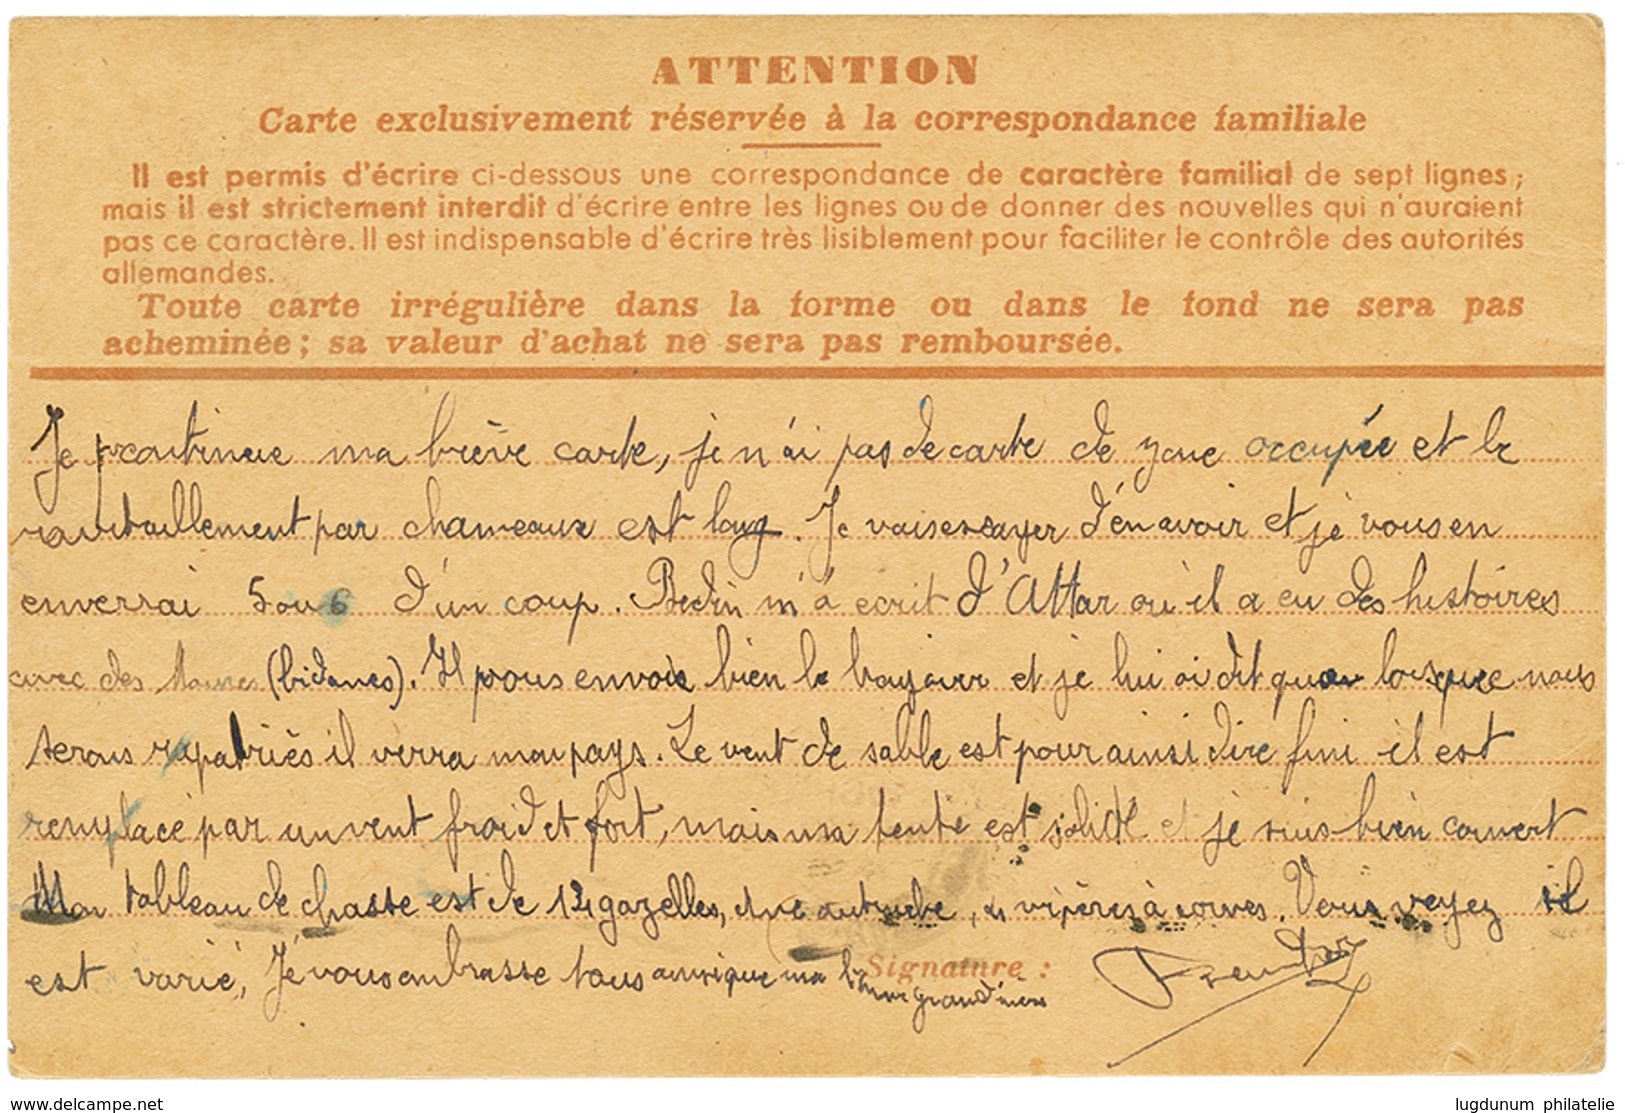 ATTENTION
Carte exclusivement réservée à la correspondance familiale
Il est permis d'écrire ci-dessous une correspondance de caractère familial de sept lignes ;
mais il est strictement interdit d'écrire entre les lignes ou de donner des nouvelles qui n'auraient
pas ce caractère. Il est indispensable d'écrire très lisiblement pour faciliter le contrôle des autorités
allemandes.
Toute carte irrégulière dans la forme ou dans le fond ne sera pas
acheminée ; sa valeur d'achat ne sera pas remboursée.
Je continue ma brève carte, je n'ai pas de carte de zone occupée et le
ravitaillement par chameaux est long. Je vais essayer d'en avoir et je vous en
enverrai 5 ou 6 d'un coup. m'a ecrit d'Attar où il a eu des histoires
avec des Maures (bidanes). Il vous envoie bien le et je lui ai dit que lorsque nous
serons rapatriés il verra mon pays. Le vent de sable est pour ainsi dire fini il est
remplacé par un vent froid et fort, mais ma tente est solide et je suis bien couvert
Mon tableau de chasse est de gazelles, une autruche, vipères à cornes. Vous voyez il
est varié, Je vous embrasse tous ainsi que ma bonne grand'mère
Signature :
delcampe.net
lugdunum philatelie